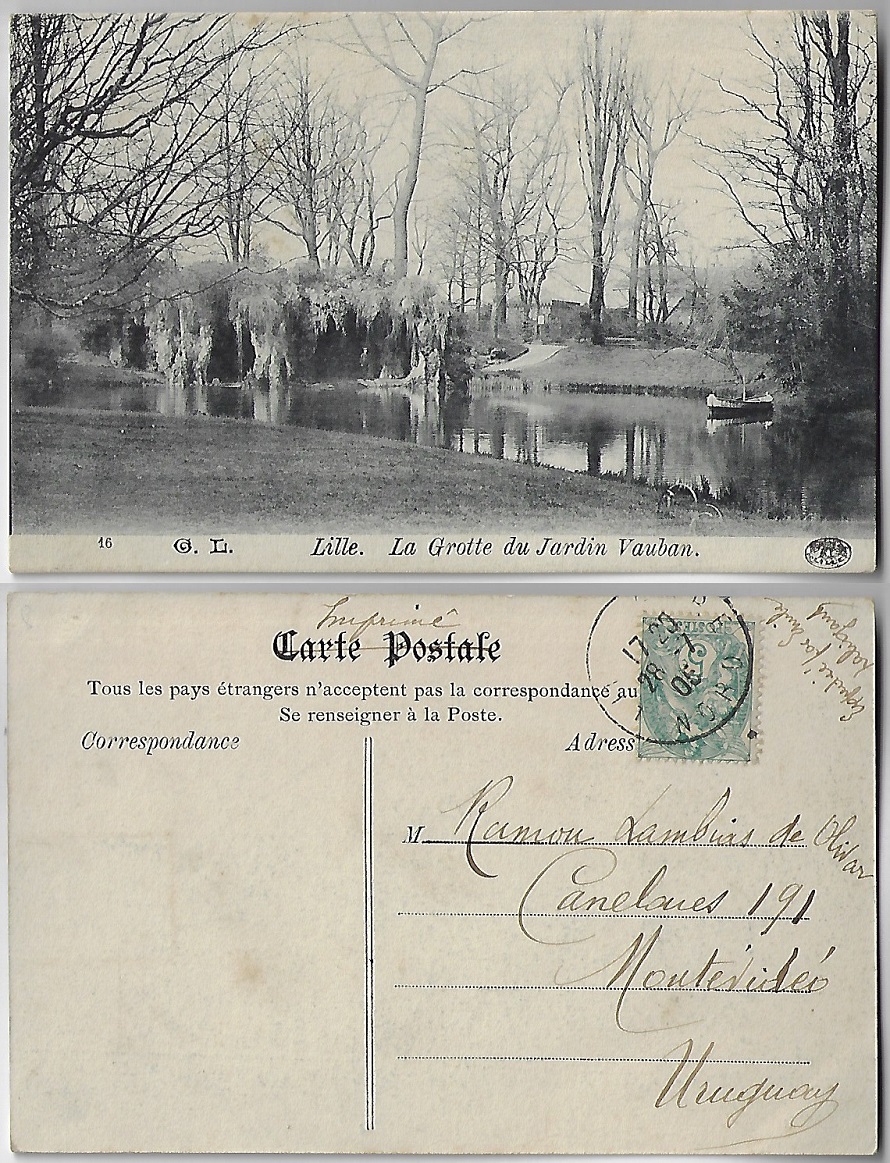 16 G. L. Lille. La Grotte du Jardin Vauban.
LILLE
Imprimé
Carte Postale
Tous les pays étrangers n'acceptent pas la correspondance au
Se renseigner à la Poste.
Correspondance
Adress
POSTES
17 20
28 - 1
05
NORD
Expédié par Emile
M Ramon Lambias de Olivar
Canelones 191
Montévidéo
Uruguay